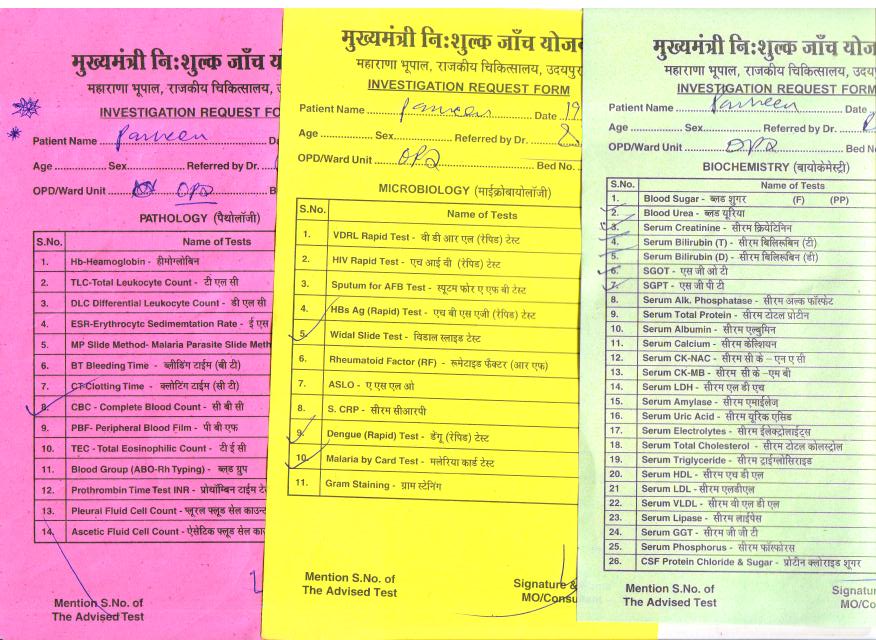 मुख्यमंत्री नि:शुल्क जाँच
महाराणा भूपाल, राजकीय चिकित्सालय,
INVESTIGATION REQUEST FO
Patient Name Parveen
Age Sex Referred by Dr.
OPD/Ward Unit OPD
PATHOLOGY (पैथोलॉजी)
S.No. Name of Tests
1. Hb-Heamoglobin - हीमोग्लोबिन
2. TLC-Total Leukocyte Count - टी एल सी
3. DLC Differential Leukocyte Count - डी एल सी
4. ESR-Erythrocytc Sedimemtation Rate - ई एस
5. MP Slide Method- Malaria Parasite Slide Meth
6. BT Bleeding Time - ब्लीडिंग टाईम (बी टी)
7. CT-Clotting Time - क्लोटिंग टाईम (सी टी)
8. CBC - Complete Blood Count - सी बी सी
9. PBF- Peripheral Blood Film - पी बी एफ
10. TEC - Total Eosinophilic Count - टी ई सी
11. Blood Group (ABO-Rh Typing) - ब्लड ग्रुप
12. Prothrombin Time Test INR - प्रोथॉम्बिन टाईम
13. Pleural Fluid Cell Count - प्लूरल फ्लूड सेल
14. Ascetic Fluid Cell Count - ऐसेटिक फ्लूड सेल
Mention S.No. of
The Advised Test
मुख्यमंत्री नि:शुल्क जाँच योज
महाराणा भूपाल, राजकीय चिकित्सालय, उदयपु
INVESTIGATION REQUEST FORM
Patient Name Parveen Date 19
Age Sex Referred by Dr.
OPD/Ward Unit OPD Bed No.
MICROBIOLOGY (माईक्रोबायोलॉजी)
S.No. Name of Tests
1. VDRL Rapid Test - वी डी आर एल (रेपिड) टेस्ट
2. HIV Rapid Test - एच आई वी (रेपिड) टेस्ट
3. Sputum for AFB Test - स्पूटम फोर ए एफ बी टेस्ट
4. HBs Ag (Rapid) Test - एच बी एस एजी (रेपिड) टेस्ट
5. Widal Slide Test - विडाल स्लाइड टेस्ट
6. Rheumatoid Factor (RF) - रूमेटाइड फैक्टर (आर एफ)
7. ASLO - ए एस एल ओ
8. S. CRP - सीरम सीआरपी
9. Dengue (Rapid) Test - डेंगू (रेपिड) टेस्ट
10. Malaria by Card Test - मलेरिया कार्ड टेस्ट
11. Gram Staining - ग्राम स्टेनिंग
Mention S.No. of
The Advised Test
Signature &
MO/Consu
मुख्यमंत्री नि:शुल्क जाँच योज
महाराणा भूपाल, राजकीय चिकित्सालय, उदय
INVESTIGATION REQUEST FORM
Patient Name Parveen Date
Age Sex Referred by Dr.
OPD/Ward Unit OPD Bed N
BIOCHEMISTRY (बायोकेमेस्ट्री)
S.No. Name of Tests
1. Blood Sugar - ब्लड शुगर (F) (PP)
2. Blood Urea - ब्लड यूरिया
3. Serum Creatinine - सीरम क्रियेटिनिन
4. Serum Bilirubin (T) - सीरम बिलिरूबिन (टी)
5. Serum Bilirubin (D) - सीरम बिलिरूबिन (डी)
6. SGOT - एस जी ओ टी
7. SGPT - एस जी पी टी
8. Serum Alk. Phosphatase - सीरम अल्क फॉस्फेट
9. Serum Total Protein - सीरम टोटल प्रोटीन
10. Serum Albumin - सीरम एल्बुमिन
11. Serum Calcium - सीरम केल्शियन
12. Serum CK-NAC - सीरम सी के - एन ए सी
13. Serum CK-MB - सीरम सी के - एम बी
14. Serum LDH - सीरम एल डी एच
15. Serum Amylase - सीरम एमाईलेज
16. Serum Uric Acid - सीरम यूरिक एसिड
17. Serum Electrolytes - सीरम ईलेक्ट्रोलाईट्स
18. Serum Total Cholesterol - सीरम टोटल कोलस्ट्रोल
19. Serum Triglyceride - सीरम ट्राईग्लोसिराइड
20. Serum HDL - सीरम एच डी एल
21 Serum LDL - सीरम एलडीएल
22. Serum VLDL - सीरम वी एल डी एल
23. Serum Lipase - सीरम लाईपेस
24. Serum GGT - सीरम जी जी टी
25. Serum Phosphorus - सीरम फॉस्फोरस
26. CSF Protein Chloride & Sugar - प्रोटीन क्लोराइड शूगर
Mention S.No. of
The Advised Test
Signatur
MO/Co